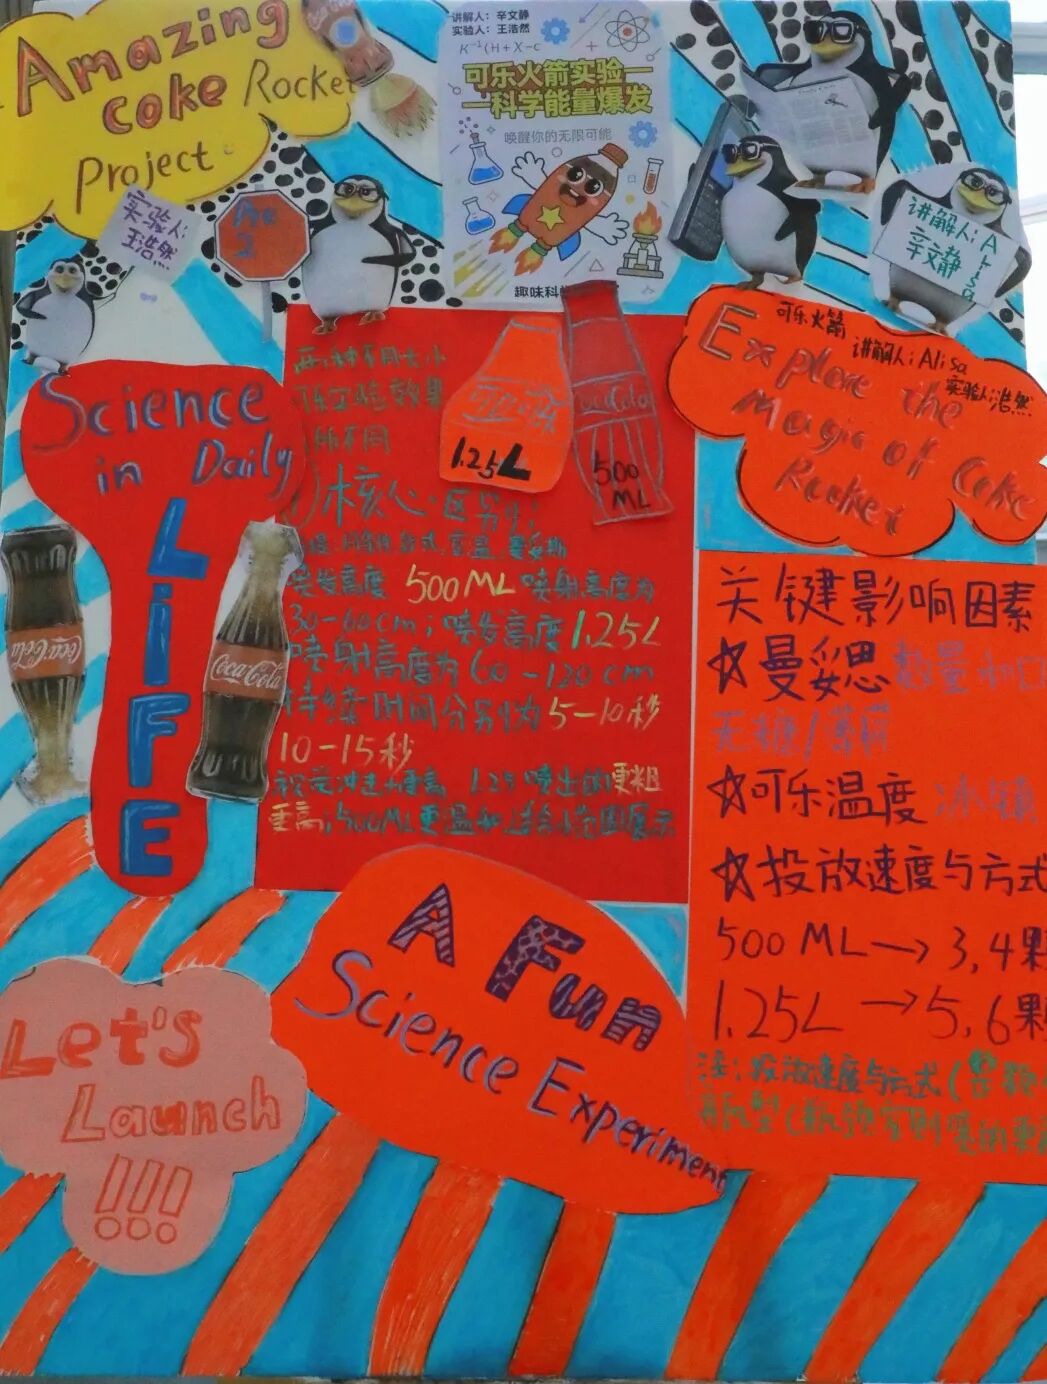 Amazing
Coke Rocket
Project
实验人:
王浩然
Pro
讲解人:辛文静
实验人:王浩然
K⁻¹(H+X-c
可乐火箭实验—
—科学能量爆发
唤醒你的无限可能
趣味科
讲解人: Alisa
辛文静
Science
in Daily
LiFE
Coca-Cola
Coca-Cola
两种不同大小
可乐实验效果
有所不同
1.25L
CocaCola
500
ML
核心区别:
喷发高度 500ML 喷射高度为
30-60cm; 喷发高度 1.25L
喷射高度为 60-120cm
持续时间分别为 5-10秒
10-15秒
视觉冲击力更高 1.25喷出的更粗
更高;500ML更温和,适合小范围展示
可乐火箭
讲解人: Alisa
实验人:浩然
Explore the
Magic of Coke
Rocket
关键影响因素
☆曼妥思 数量和口
无糖/薄荷
☆可乐温度 冰镇
☆投放速度与方式
500ML→3,4颗
1.25L→5,6颗
注:投放速度与方式(整颗
A Fun
Science Experiment
Let's
Launch
!!!